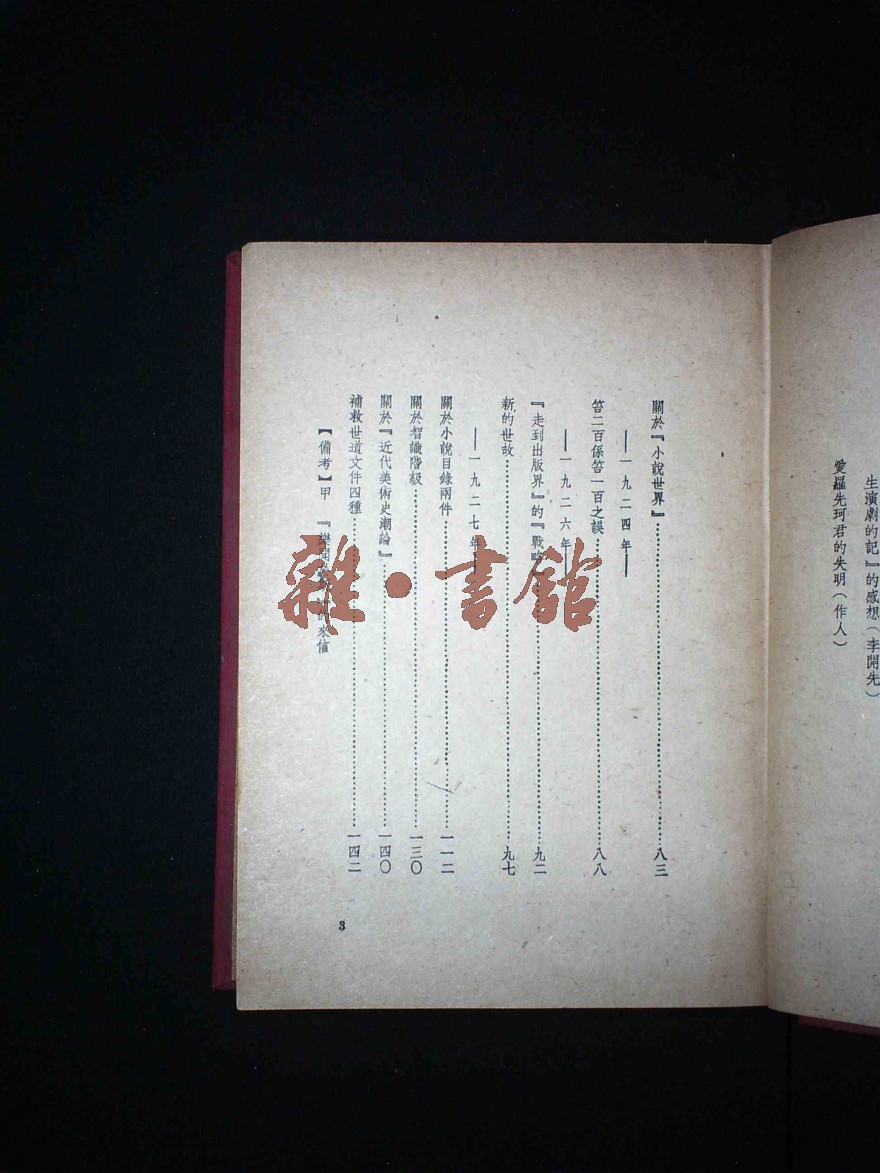 生演劇的記』的感想(李開先)
愛羅先珂君的失明(作人)
關於『小說世界』……八三
——一九二四年——
答二百係答一百之誤……八八
——一九二六年——
『走到出版界』的『戰略』……九二
新的世故……九七
——一九二七年——
關於小說目錄兩件……一一二
關於智識階級……一三〇
關於『近代美術史潮論』……一四〇
補救世道文件四種……一四二
【備考】甲 『樂聞 來信
3
雜·書館